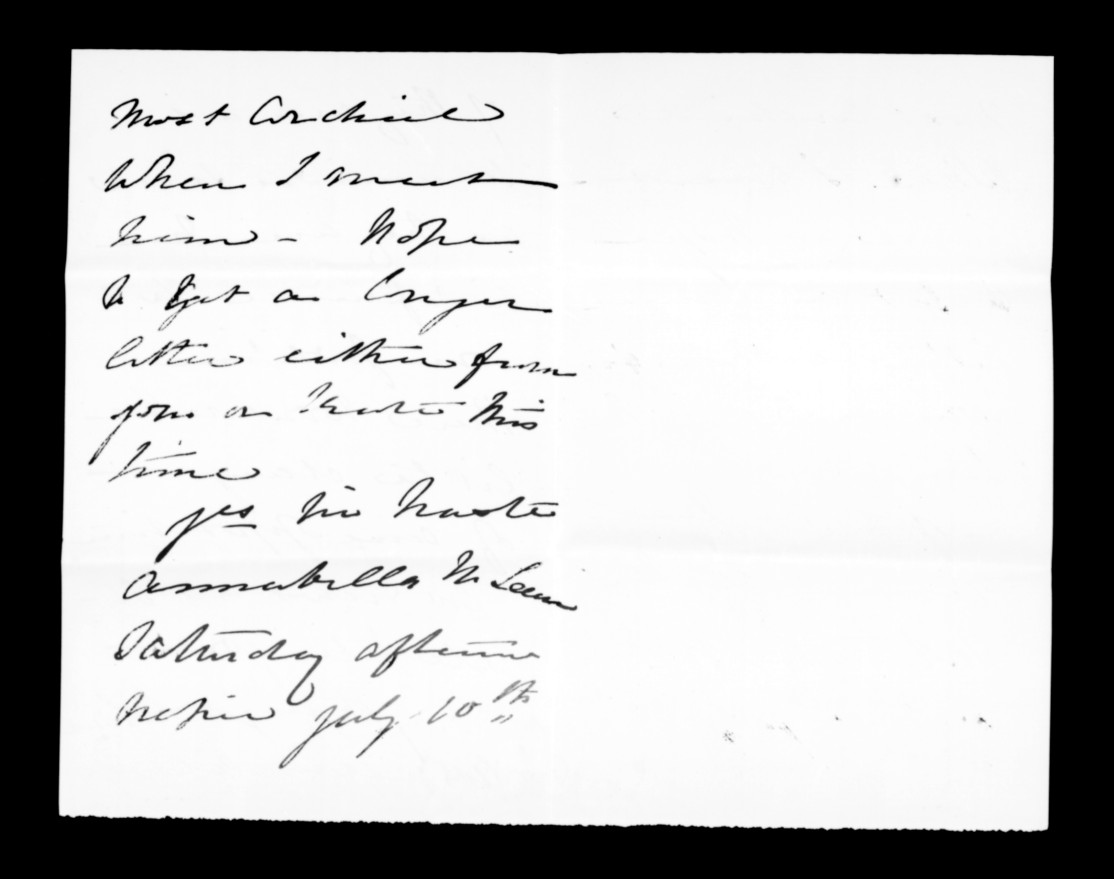 Most Cordial
When I meet
him - Hope
to get a longer
letter either from
you or Kate this
time
yes in haste
Annabella McLean
Saturday afternoon
Napier July 10th